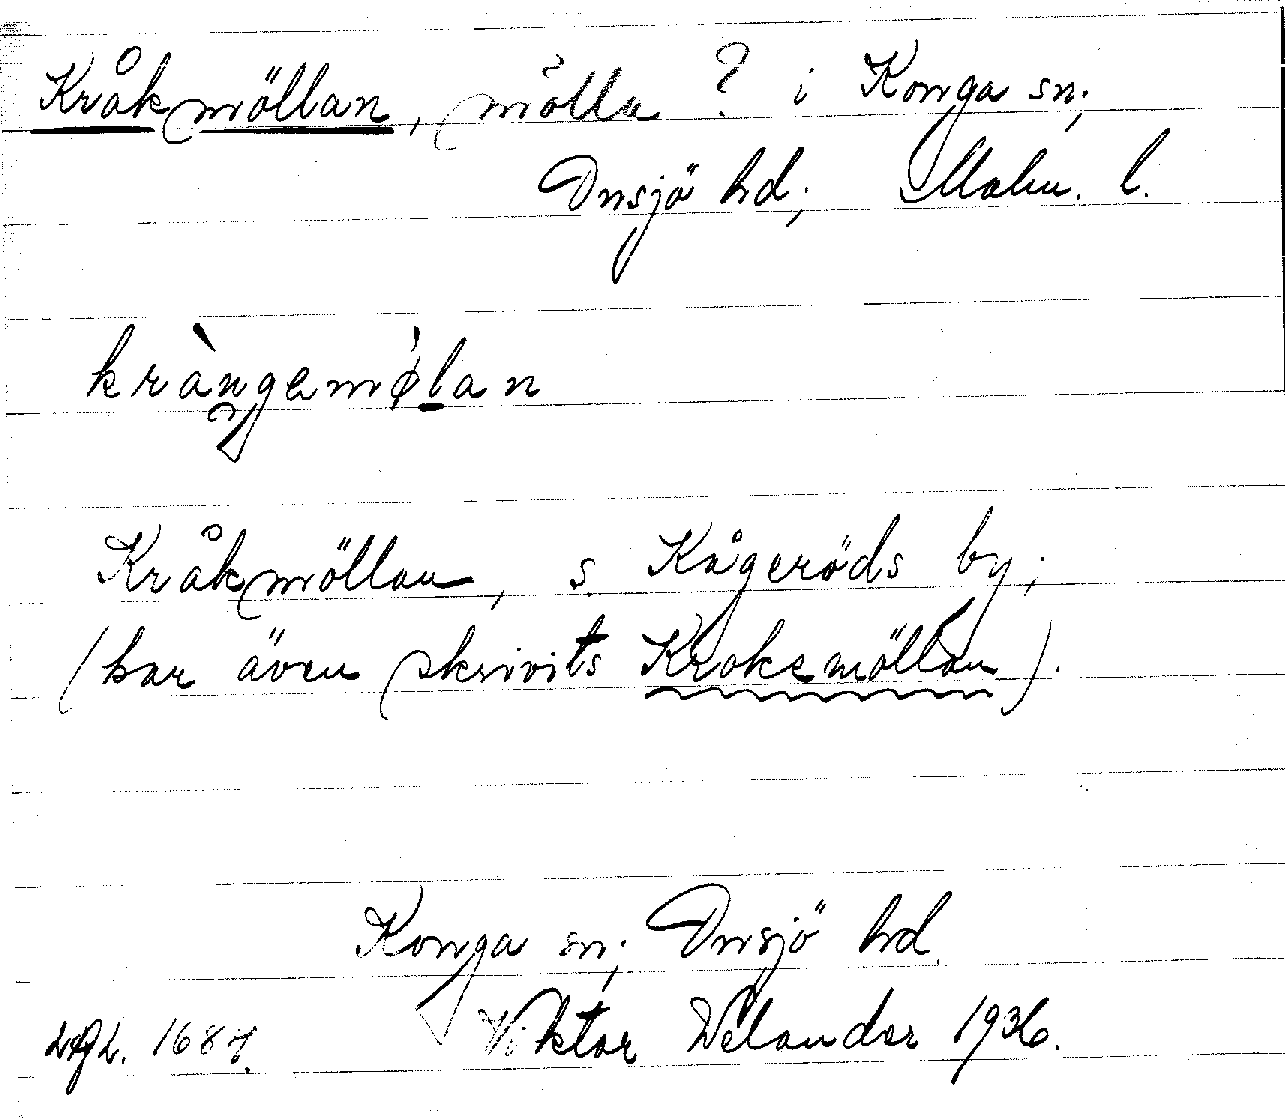 Kråkmöllan, mölla ? i Konga sn;
Onsjö hd; Malm. l.
kràngamǿlan
Kråkmöllan, s. Kågeröds by;
(har även skrivits Krokemöllan).
Konga sn; Onsjö hd.
1687. Viktor Welander 1936.